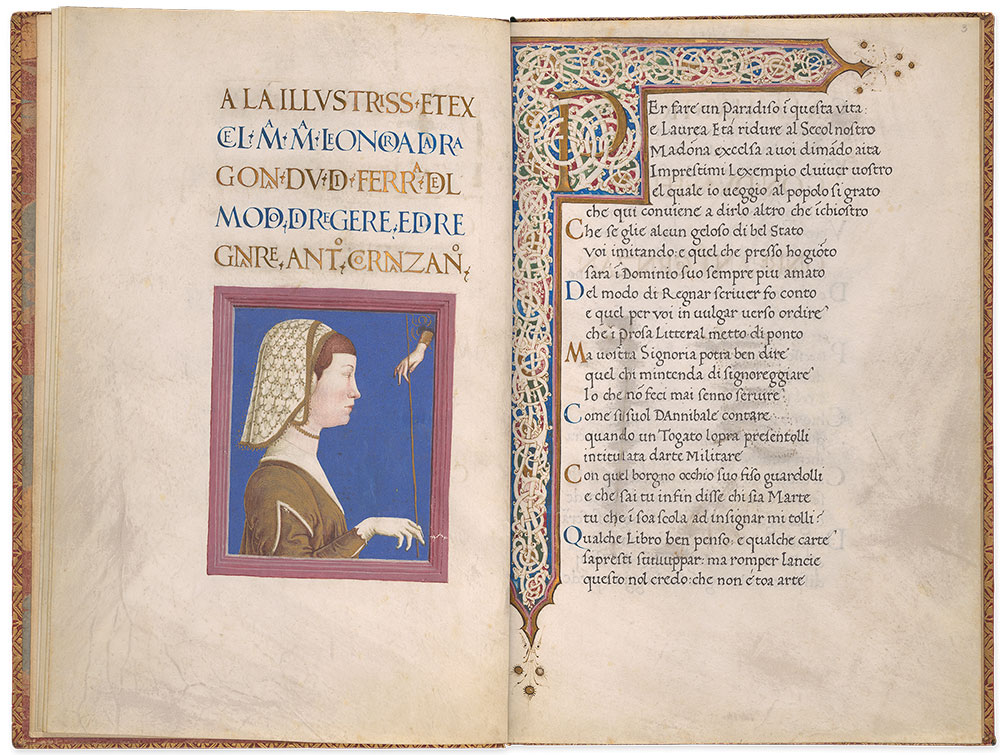 A LA ILLVSTRISS · ET EX
CEL · MA · MA · LEONORA DARA
GON · DV · D · FERRARA · DEL
MODO, D REGERE, E DI RE
GNARE, ANTO, CORNAZANO,
3
PEr fare un Paradiso ī questa vita
e Laurea Etá ridure al Secol nostro
Madōna excelsa a voi dimādo aita
Imprestimi Lexempio el viuer uostro
el quale io veggio al popolo si grato
che qui conviene a dirlo altro che īchiostro
Che se glie alcun geloso di bel Stato
voi imitando: e quel che presso ho giōto
sará ī Dominio suo sempre piu amato
Del modo di Regnar scriuer fo conto
e quel per voi in vulgar verso ordire
che ī prosa Litteral metto di ponto
Ma vostra Signoria potra ben dire
quel chi mintenda di signoreggiare
Io che nō feci mai senno seruire?
Come si suol DAnnibale contare
quando un Togato lopra presentolli
intitulata darte Militare
Con quel borgno occhio suo fiso guardolli
e che sai tu infin disse chi sia Marte
tu che ī soa scola ad insignar mi tolli?
Qualche Libro ben penso: e qualche carte
sapresti sviluppar: ma romper lancie
questo nol credo: che non é toa arte